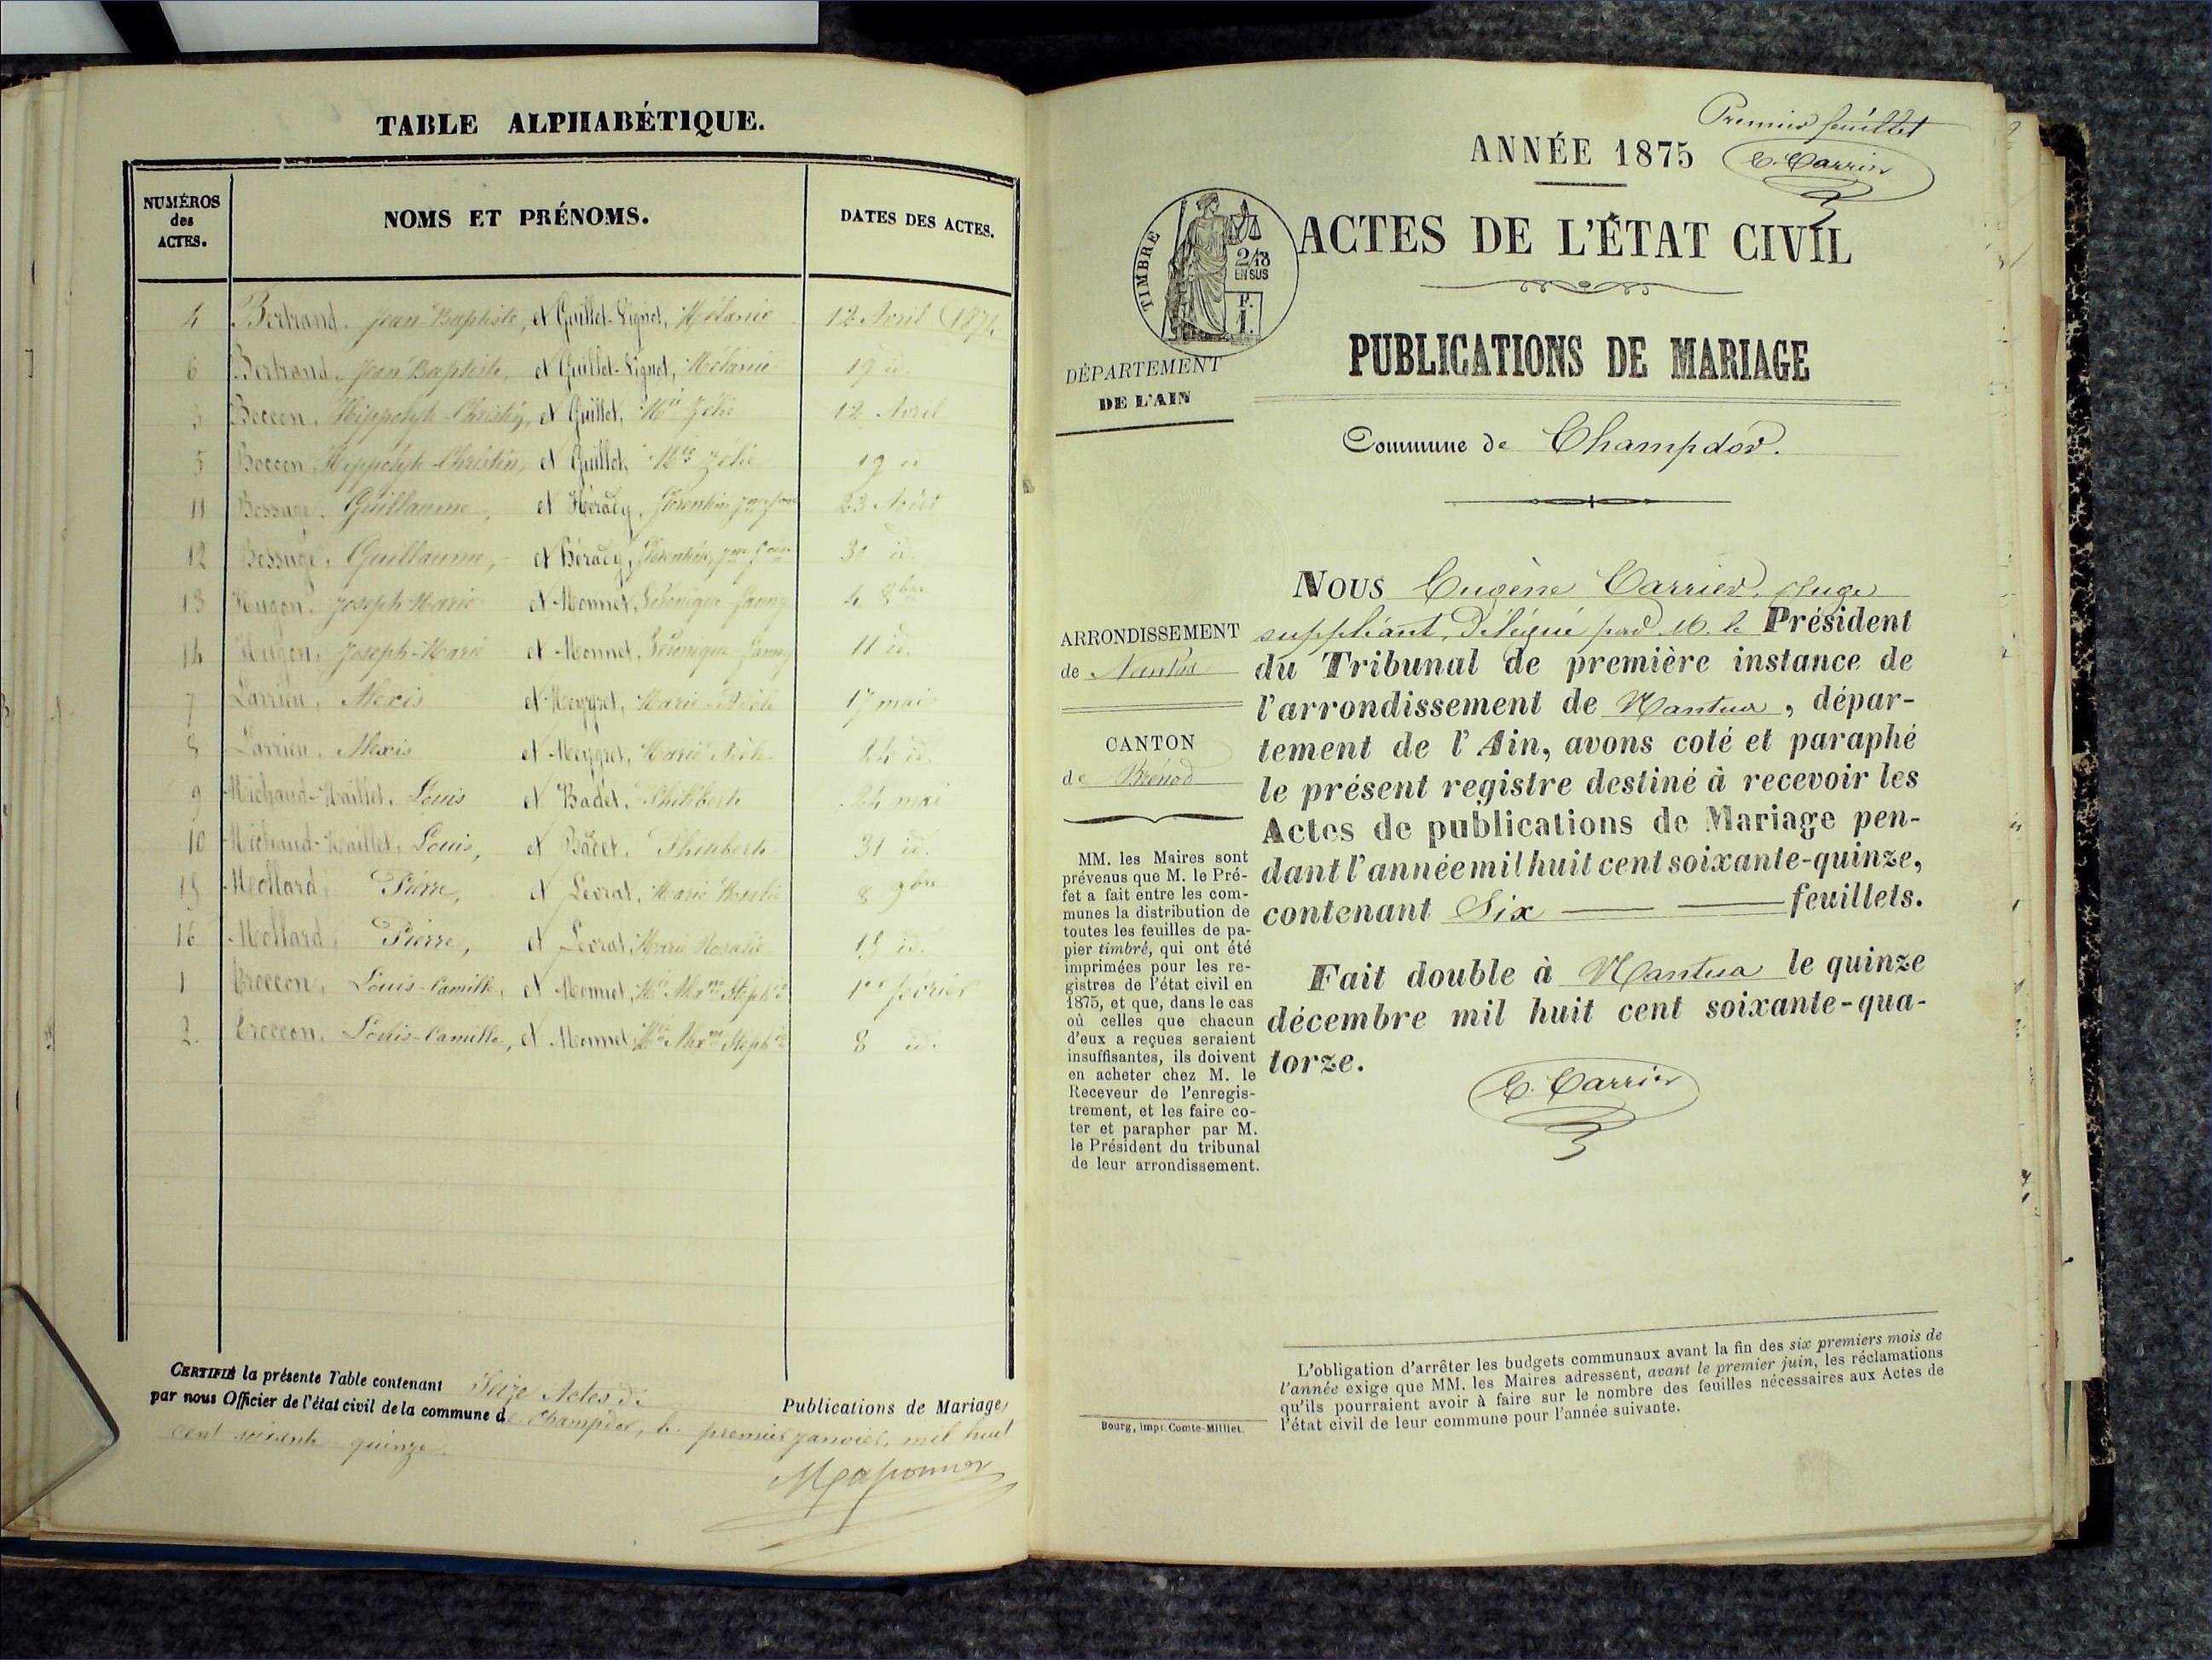 TABLE ALPHABÉTIQUE.
NUMÉROS des ACTES.
NOMS ET PRÉNOMS.
DATES DES ACTES.
4 Bertrand, Jean Baptiste, et Guillet-Vignet, Mélanie 12 Avril 1874
6 Bertrand, Jean Baptiste, et Guillet-Vignet, Mélanie 19 id.
3 Boccon, Hippolyte-Christin, et Guillet, Mie Zélie 12 Avril
5 Boccon Hippolyte-Christin, et Guillet, Mie Zélie 19 id
11 Bessuge, Guillaume, et Héracy, 23 Août
12 Bessuge, Guillaume, et Béracy, 30 id.
13 Hugon, Joseph-Marie et Monnet, Véronique-Fanny 4 8bre
14 Hugon, Joseph-Marie et Monnet, Véronique-Fanny 11 id.
7 Larrieu, Alexis et Meygret, Marie 17 mai
8 Larrieu, Alexis et Meygret, Marie 24 id.
9 Michaud-Maillet, Louis et Badet, Philiberte 24 mai
10 Michaud-Maillet, Louis, et Badet, Philiberte 31 id.
15 Mollard, Pierre, et Levrat, Marie Rosalie 8 9bre
16 Mollard, Pierre, et Levrat, Marie Rosalie 15 id.
1 Louis-Camille, et Monnet, 1er février
2. Louis-Camille, et Monnet 8 id.
CERTIFIÉ la présente Table contenant Seize Actes de Publications de Mariage,
par nous Officier de l'état civil de la commune de Champdor, le premier janvier, mil huit
cent soixante quinze.
Premier feuillet
ANNÉE 1875
E. Carrier
TIMBRE
2/10
EN SUS
ACTES DE L'ÉTAT CIVIL
PUBLICATIONS DE MARIAGE
DÉPARTEMENT
DE L'AIN
Commune de Champdor.
ARRONDISSEMENT
de Nantua
CANTON
de Brénod
MM. les Maires sont
prévenus que M. le Pré-
fet a fait entre les com-
munes la distribution de
toutes les feuilles de pa-
pier timbré, qui ont été
imprimées pour les re-
gistres de l'état civil en
1875, et que, dans le cas
où celles que chacun
d'eux a reçues seraient
insuffisantes, ils doivent
en acheter chez M. le
Receveur de l'enregis-
trement, et les faire co-
ter et parapher par M.
le Président du tribunal
de leur arrondissement.
NOUS Eugène Carrier, Juge
suppléant, Délégué par M. le Président
du Tribunal de première instance de
l'arrondissement de Nantua, dépar-
tement de l'Ain, avons coté et paraphé
le présent registre destiné à recevoir les
Actes de publications de Mariage pen-
dant l'année mil huit cent soixante-quinze,
contenant Six feuillets.
Fait double à Nantua le quinze
décembre mil huit cent soixante-qua-
torze.
E. Carrier
L'obligation d'arrêter les budgets communaux avant la fin des six premiers mois de
l'année exige que MM. les Maires adressent, avant le premier juin, les réclamations
qu'ils pourraient avoir à faire sur le nombre des feuilles nécessaires aux Actes de
l'état civil de leur commune pour l'année suivante.
Bourg, impr. Comte-Milliet.